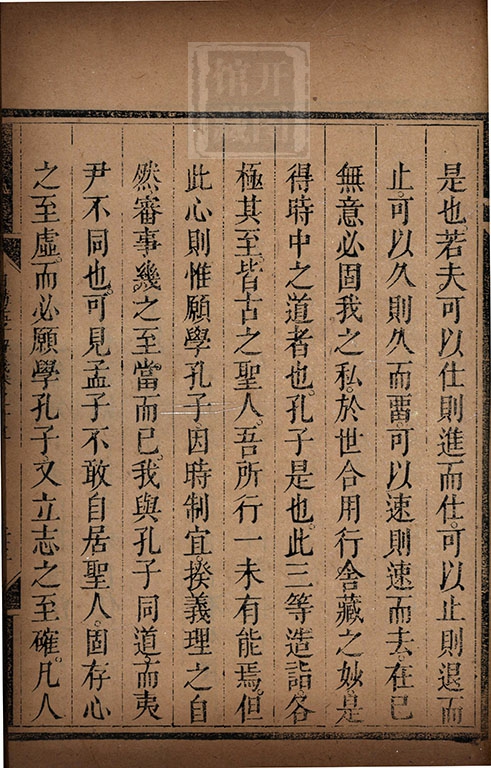 是也若夫可以仕則進而仕。可以止則退而
止。可以久則久而畱。可以速則速而去。在已
無意必固我之私。於世合用行舍藏之妙。是
得時中之道者也。孔子是也。此三等造詣。各
極其至。皆古之聖人。吾所行一未有能焉。但
此心則惟願學孔子。因時制宜。揆義理之自
然。審事幾之至當而已。我與孔子同道。而夷
尹不同也。可見孟子不敢自居聖人。固存心
之至虛。而必願學孔子。又立志之至確。凡人